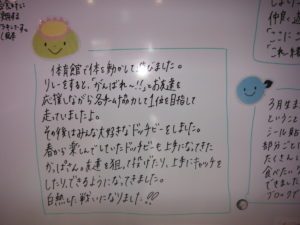 体育館で体を動かして遊びました。
リレーをすると、「がんばれ〜!!」とお友達を
応援しながら各チーム協力して1位を目指して
走っていましたよ。
その後はみんな大好きなドッチビーをしました。
春から楽しんでいたドッチビーも上手になってきた
かっぱさん。友達を狙って投げたり、上手にキャッチを
したりできるようになってきました。
白熱した戦いになりました!!
3月生ま
ということ
シール貼
部分ごと
たくさん
食べたい
できました
ブロックで